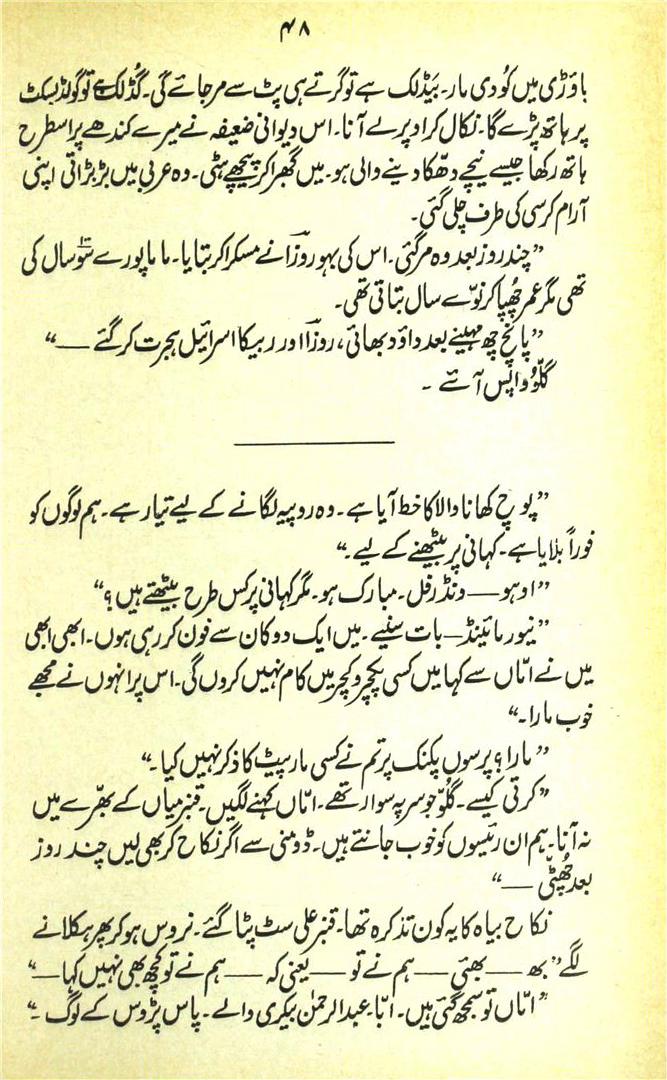 ۴۸
باؤڑی میں کُودی مار۔ بَیڈلک ہے تو گرتے ہی پٹ سے مر جائے گی۔ گُڈلک ہے تو گولڈ بسکٹ
پر ہاتھ پڑے گا۔ نکال کر اوپر لے آنا۔ اس دیوانی ضعیفہ نے میرے کندھے پر اسطرح
ہاتھ رکھا جیسے نیچے دھّکا دینے والی ہو۔ میں گھبرا کر پیچھے ہٹی۔ وہ عربی میں بڑبڑاتی اپنی
آرام کرسی کی طرف چلی گئی۔
”چند روز بعد وہ مر گئی۔ اس کی بہو روزا نے مسکرا کر بتایا۔ ماما پورے سَو سال کی
تھی مگر عمر چُھپا کر نوّے سال بتاتی تھی۔
”پانچ چھ مہینے بعد داؤد بھائی، روزا اور ربیکا اسرائیل ہجرت کر گئے —“
گلّو واپس آئے ۔
”پوچ کھانا والا کا خط آیا ہے۔ وہ روپیہ لگانے کے لیے تیار ہے۔ ہم لوگوں کو
فوراً بلایا ہے۔ کہانی پر بیٹھنے کے لیے۔“
”اوہو — ونڈرفل۔ مبارک ہو۔ مگر کہانی پر کس طرح بیٹھتے ہیں؟“
”نیور مائینڈ — بات سنیے۔ میں ایک دوکان سے فون کر رہی ہوں۔ ابھی ابھی
میں نے امّاں سے کہا میں کسی پکچر وکچر میں کام نہیں کروں گی۔ اس پر انہوں نے مجھے
خوب مارا۔“
”مارا؟ پرسوں پکنک پر تم نے کسی مار پیٹ کا ذکر نہیں کیا۔“
”کرتی کیسے۔ گلّو جو سر پہ سوار تھے۔ امّاں کہنے لگیں۔ قنبر میاں کے بھّرے میں
نہ آنا۔ ہم ان رئیسوں کو خوب جانتے ہیں۔ ڈومنی سے اگر نکاح کر بھی لیں چند روز
بعد چُھٹّی —“
نکاح بیاہ کا یہ کون تذکرہ تھا۔ قنبر علی سٹ پٹا گئے۔ نروس ہو کر پھر ہکلانے
لگے ”بھ — بھئی — ہم نے تو — یعنی کہ — ہم نے تو کچھ بھی نہیں کہا —“
”امّاں تو سمجھ گئی ہیں۔ ابّا۔ عبدالرحمٰن بیکری والے۔ پاس پڑوس کے لوگ ۔“